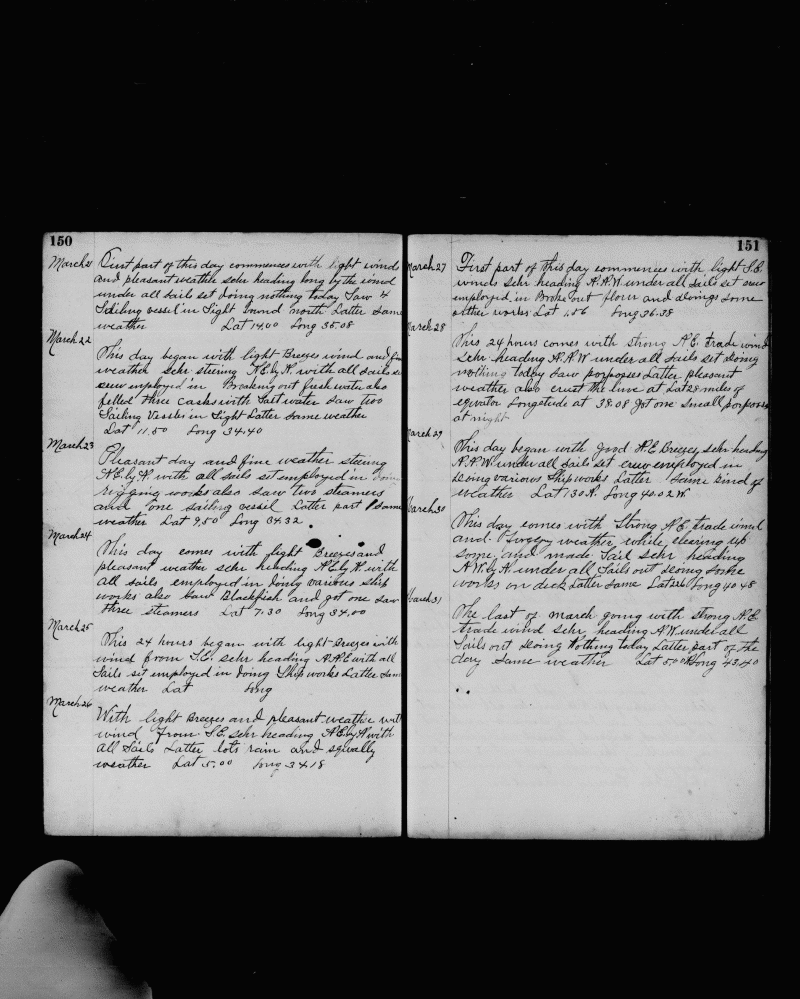 150
March 21 First part of this day commences with light winds
and pleasant weather schr heading bong by the wind
under all sails set doing nothing today Saw 4
Sailing vessel in Sight bound north Latter Same
weather Lat 14,00 Long 35.08
March 22 This day began with light Breezes wind and
weather Schr steering N.E.by N. with all Sails
crew employed in Breaking out fresh water also
filled three casks with Salt water Saw two
Sailing Vessels in Sight Latter Same weather
Lat 11.50 Long 34.40
March 23 Pleasant day and fine weather steering
N.E.by N. with all sails set employed in doing
rigging works also saw two steamers
and one sailing vessil Latter part Same
weather Lat 9,50 Long 34.32
March 24 This day comes with light Breezes and
pleasant weather schr heading N.E.by N. with
all sails employed in doing various ship
works also Saw Blackfish and got one saw
three steamers Lat 7.30 Long 34,00
March 25 This 24 hours began with light Breezes with
wind from S.E. schr heading N.N.E with all
Sails set employed in doing Ship works Latter Same
weather Lat Long
March 26 With light Breezes and pleasant weather with
wind from S.E. schr heading N.E.by N with
all Sails Latter lots rain and squally
weather Lat 5.00 Long 34.18
151
March 27 First part of this day commences with light S.E.
winds Schr heading N.N.W. under all Sails set crew
employed in Broke out flour and doings some
other works Lat 1,56 Long 36.38
March 28 This 24 hours comes with strong N.E. trade wind
Schr heading N.N.W under all Sails set doing
nothing today Saw porposes Latter pleasant
weather also crust the line at Lat 28 miles of
eqvator Longetude at 38.08 got one small porpoises
at night
March 29 This day began with good N.E Breezes, schr heading
N.N.W. under all sails set crew employed in
doing various Ship works Latter Same kind of
weather Lat 1.30 N. Long 40.02 W
March 30 This day comes with Strong N.E. trade wind
and weather while clearing up
some and made Sail schr heading
N.W.by N. under all Sails out doing some
works on deck Latter Same Lat Long 40.48
March 31 The last of march going with strong N.E.
trade wind Schr, heading N.W. under all
Sails out doing Nothing today Latter part of the
day Same weather Lat 5,00 N Long 43.40